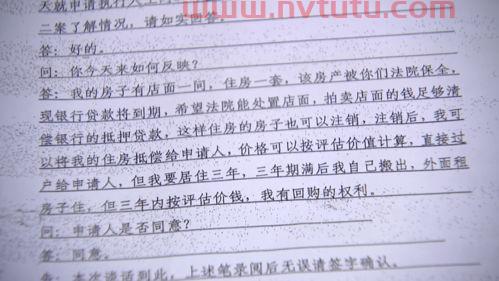 www.nvtutu.com
天就申请执行人
二案了解情况，请如实回答。
答：好的。
问：你今天来如何反映？
答：我的房子有店面一间，住房一套，该房产被你们法院保全，
现银行贷款将到期，希望法院能处置店面，拍卖店面的钱足够清
偿银行的抵押贷款，这样住房的房子也可以注销，注销后，我可
以将我的住房抵偿给申请人，价格可以按评估价值计算，直接过
户给申请人，但我要居住三年，三年期满后我自己搬出，外面租
房子住，但三年内按评估价钱，我有回购的权利。
问：申请人是否同意？
答：同意。
告：本次谈话到此，上述笔录阅后无误请签字确认。